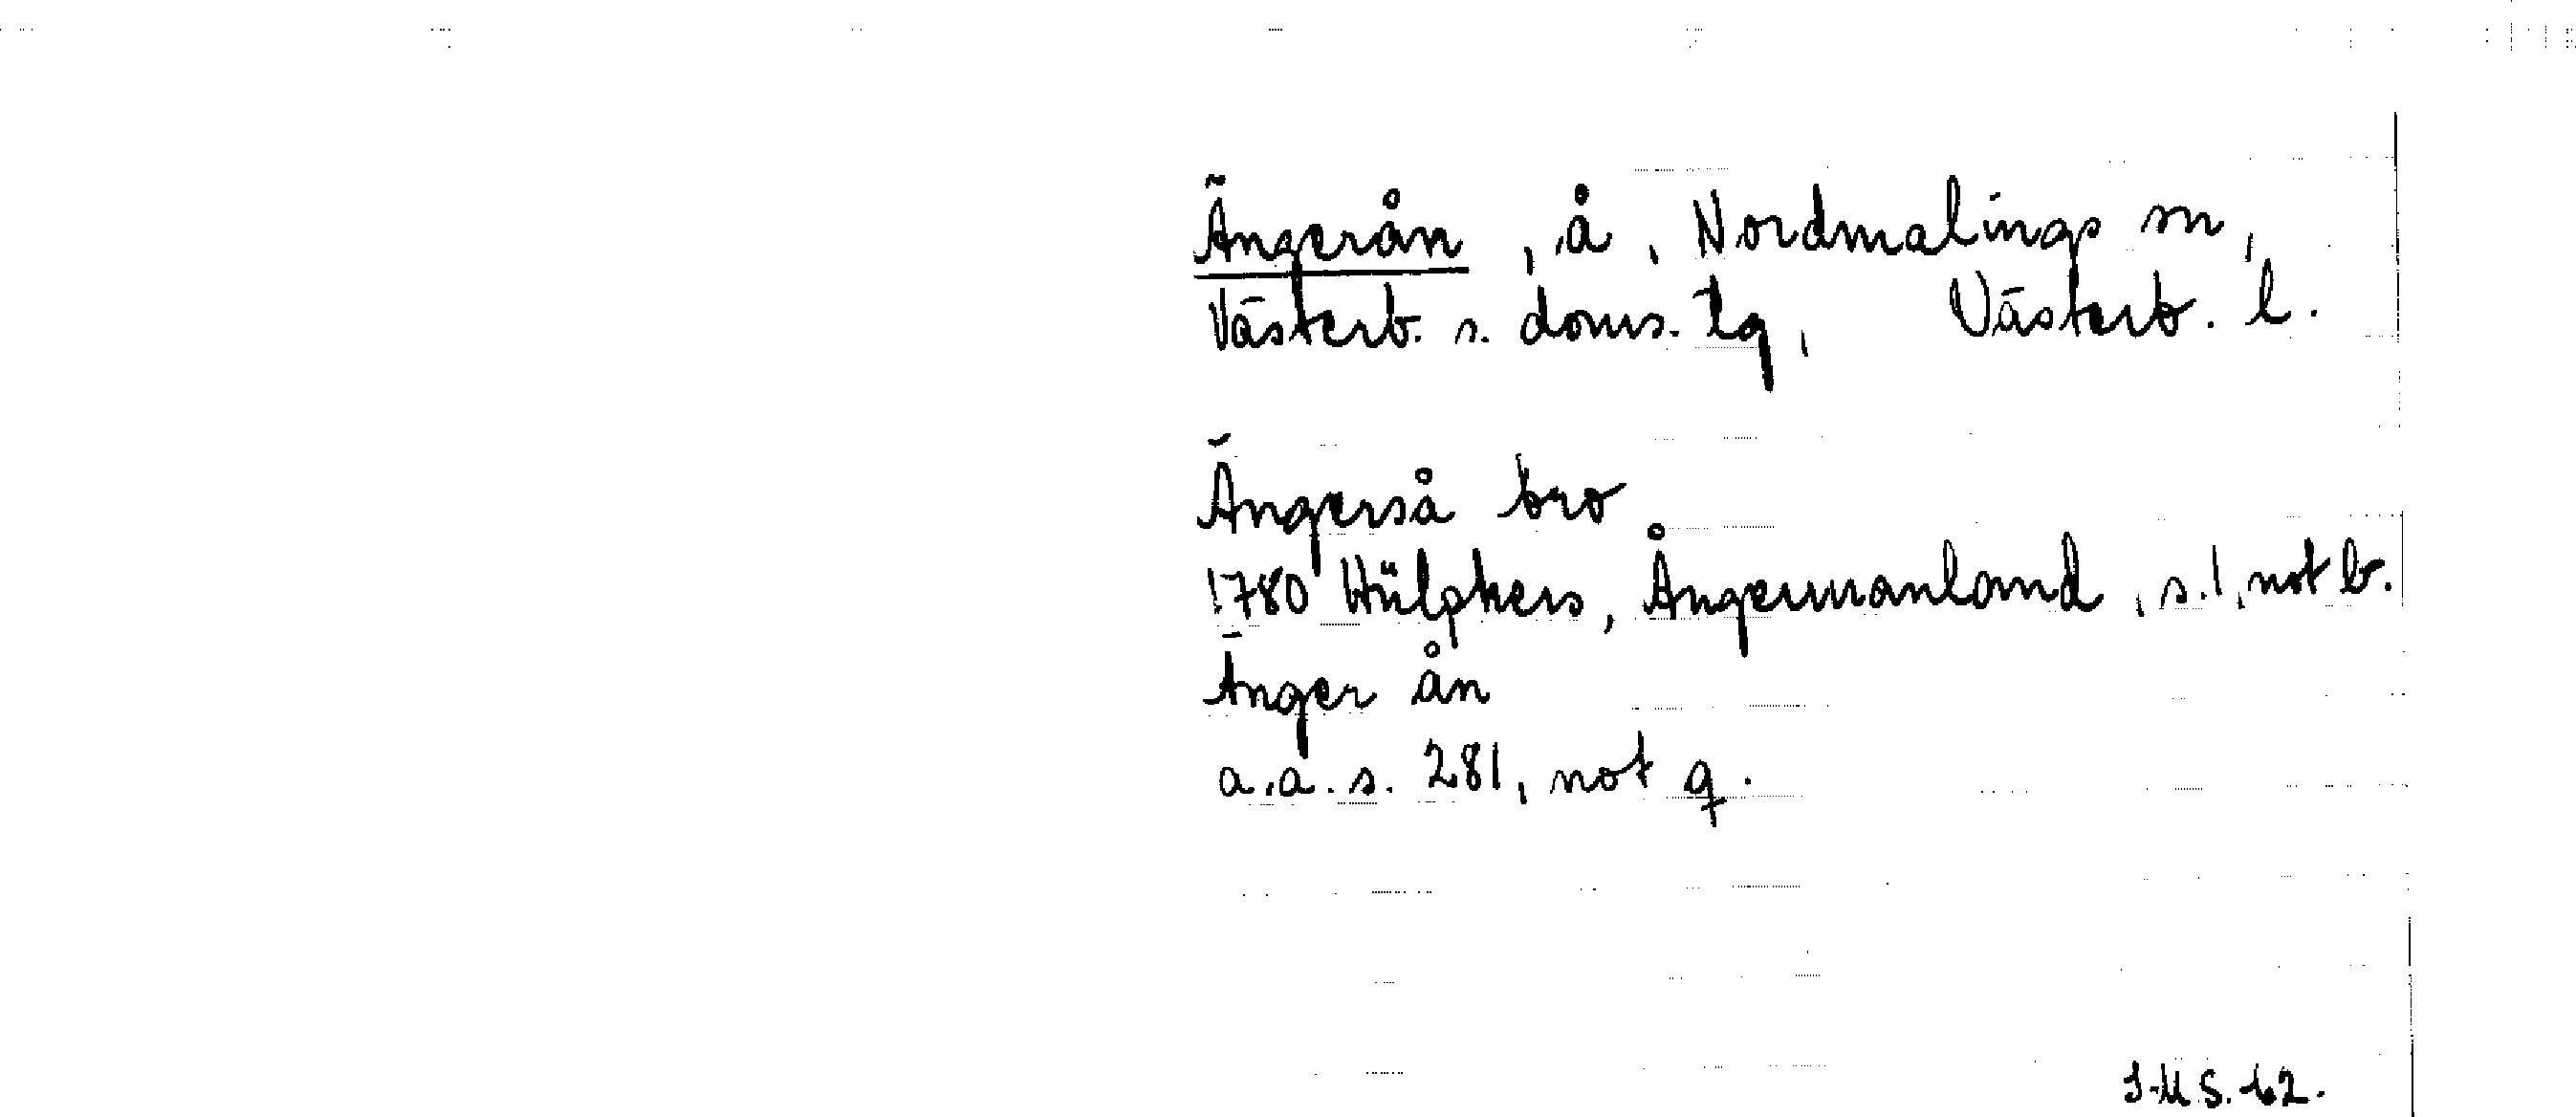 Ängerån, å, Nordmalings sn,
Västerb. s. doms. lg, Västerb. l.
Ängerså bro
1780 Hülphers, Ångermanland, s. 1, not b.
Änger ån
a.a. s. 281, not q.
I-M S. 62.